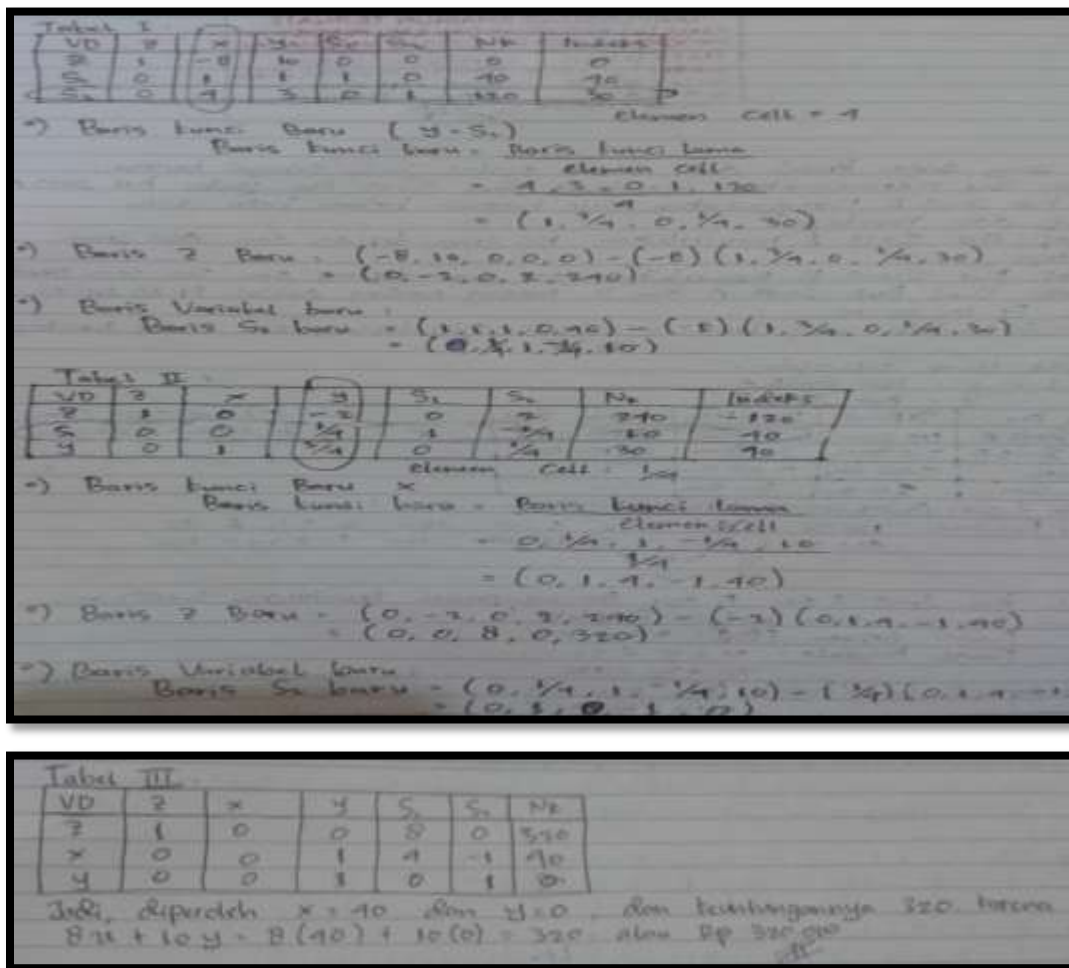 Tabel I
VD Z x y S₁ S₂ NK Indeks
Z 1 -8 10 0 0 0 0
S₁ 0 1 1 1 0 40 40
S₂ 0 4 3 0 1 120 30
elemen cell = 4
*) Baris kunci Baru (y - S₂)
Baris kunci baru = Baris kunci lama
elemen cell
= 4, 3, 0, 1, 120
4
= (1, 3/4, 0, 1/4, 30)
*) Baris Z Baru = (-8, 10, 0, 0, 0) - (-8) (1, 3/4, 0, 1/4, 30)
= (0, -2, 0, 2, 240)
*) Baris Variabel baru :
Baris S₁ baru = (1, 1, 1, 0, 40) - (-8) (1, 3/4, 0, 1/4, 30)
= (0, 1/4, 1, -1/4, 10)
Tabel II
VD Z x y S₁ S₂ NK Indeks
Z 1 0 -2 0 2 240 -120
S₁ 0 0 1/4 1 -1/4 10 40
y 0 1 3/4 0 1/4 30 40
elemen cell = 1/4
*) Baris kunci Baru x
Baris kunci baru = Baris kunci lama
elemen cell
= 0, 1/4, 1, -1/4, 10
1/4
= (0, 1, 4, -1, 40)
*) Baris Z Baru = (0, -2, 0, 2, 240) - (-2) (0, 1, 4, -1, 40)
= (0, 0, 8, 0, 320)
*) Baris Variabel baru
Baris S₂ baru = (0, 1/4, 1, -1/4, 10) - (3/4) (0, 1, 4, -1
= (0, 1, 0, 1, 0)
Tabel III
VD Z x y S₁ S₂ NK
Z 1 0 0 8 0 320
x 0 0 1 4 -1 40
y 0 0 1 0 1 0
Jadi, diperoleh x = 40 dan y = 0, dan keuntungannya 320 karena
8x + 10y = 8(40) + 10(0) = 320 atau Rp 320.000